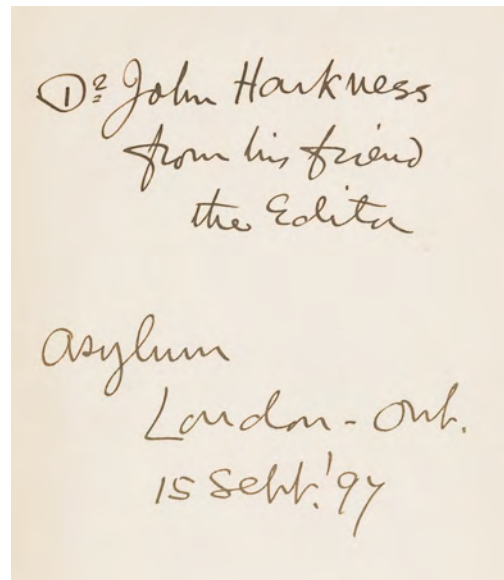 Dr John Harkness
from his friend
the Editor
Asylum
London - Ont.
15 Sept. '97